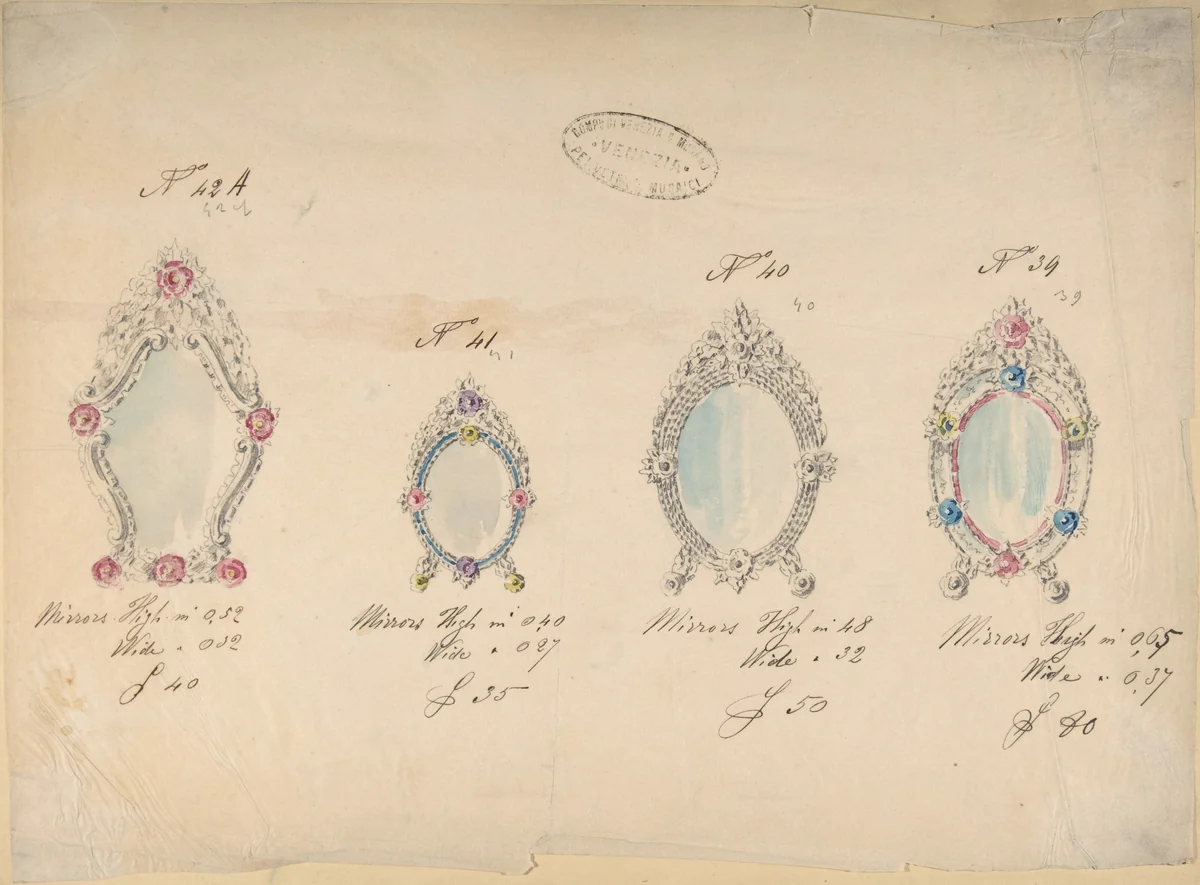 COMP. DI VENEZIA E MURANO
VENEZIA
PEL VETRI E MUSAICI
Nº 42A
42A
Nº 41
41
Nº 40
40
Nº 39
39
Mirrors High m 0,52
Wide " 0 32
£ 40
Mirrors High m 0,40
Wide " 0 27
£ 35
Mirrors High m 48
Wide " 32
£ 50
Mirrors High m 0,65
Wide " 0,37
£ 80